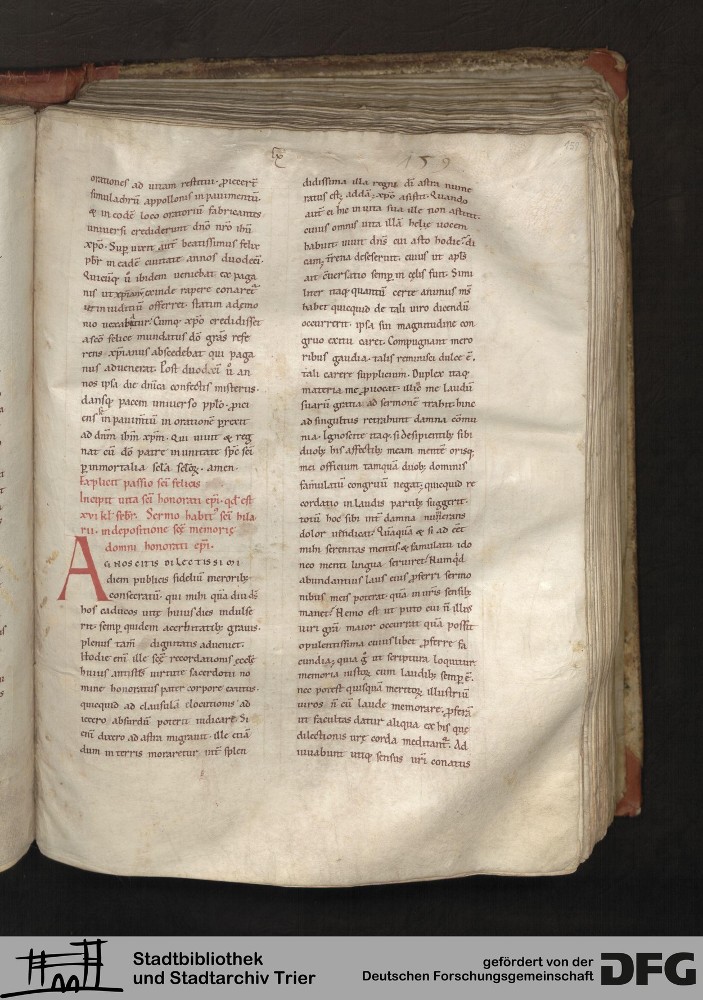 159
orationes ad uitam restitui. p̲icerēt
simulachrū appollonis in pauimentū.
& in eodē loco oratoriū fabricantes
uniuersi crediderunt dn̄o nr̄o ihū
xp̄o. Sup̲uixit aut̄ beatissimus felix
pbr̄ in eadē ciuitate annos duodecī.
Quicūq; ū ibidem ueniebat ex paga
nis ut xp̄ianū exinde rapere
in iudiciū offerret. statim a demo
nio uexabatur. Cumq; xp̄o credidisset
a sc̄o felice mundatus dō grās refe
rens xp̄ianus abscedebat qui paga
nus aduenerat. Post duodecī ū an
nos ipsa die dn̄ica confectis misteriis.
dansq; pacem uniuerso pp̄lo. p̲ici
ens in pauimtū in orationē p̲rexit
ad dn̄m ihm xp̄m. qui uiuit & reg
nat cū dō patre in unitate sp̄c sc̄i
p̲ inmortalia sc̄la sc̄lor̄. amen.
Explicit passio sc̄i felicis
Incipit uita sc̄i honorati ep̄i. qd̄ est
xvi kl̄ febr̄. Sermo habit' sc̄i hila
rii. in depositione scę memorię
domni honorati ep̄i.
AGNOSCITIS DILECTISSIMI
diem publicis fideliū meroribȝ
consecratū. qui mihi quā diu ds̄
hos caducos uitę huius dies indulse
rit. semp̲ quidem acerbitatibȝ grauis.
plenus tam̄ dignitatis adueniet.
Hodie eni ille scę recordationis ecclę
huius antistes uirtute sacerdotii no
mine honoratus pater corpore exutus.
quicquid ad clausulā elocutionis ad
iecero absurdū poterit iudicare. Si
eni dixero ad astra migrauit. ille etiā
dum in terris moraretur int̄ splen
didissima illa regni dī astra nume
ratus est. addā: xp̄o asistit. Quando
aut̄ ei hic in uita sua ille non astitit.
cuius omnis uita illā helię uocem
habuit. uiuit dn̄s cui asto hodie. di
cam t̄rena deseseruit. cuius ut apl̄s
ait cuersatio semp̲ in cęlis fuit. Simi
liter itaq; quantū certe animus ms̄
habet quicquid de tali uiro dicendū
occurrerit. ipsa sui magnitudine con
gruo exitu caret. Compugnant mero
ribus gaudia. talis reminisci dulce ē.
tali carere supplicium. Duplex itaq;
materia me p̲uocat. illic me laudū
suarū gratia ad sermonē trahit. hinc
ad singultus retrahunt damna cōmu
nia. Ignoscite itaq; si desipientibȝ sibi
duobȝ his affectibȝ meam mentē orisq;
mei officium tamquā duobȝ dominis
famulatū congruū negat. quicquid re
cordatio in laudis partibȝ suggerit.
totū hoc sibi int̄ damna numerans
dolor uindicat. Quāquā & si ad ēet
mihi serenitas mentis. & famulatu ido
neo menti lingua seruiret. Numqd̄
abundantius laus eius p̲ferri sermo
nibus meis poterat quā in uris̄ sensibȝ
manet. Nemo est ut puto cui n̄ illius
uiri grā maior occurrat quā possit
opulentissima cuiuslibet p̲ferre fa
cundia. quia g̊ ut scriptura loquitur
memoria iustor̄ cum laudibȝ semp̲ ē.
nec potest quisquā meritor̄ illustriū
uiros n̄ cū laude memorare. p̲ferā
ut facultas datur aliqua ex his que
dilectionis urę corda meditant̄. Ad
iuuabunt utiq; sensus uri conatus
Stadtbibliothek
und Stadtarchiv Trier
gefördert von der
Deutschen Forschungsgemeinschaft
DFG